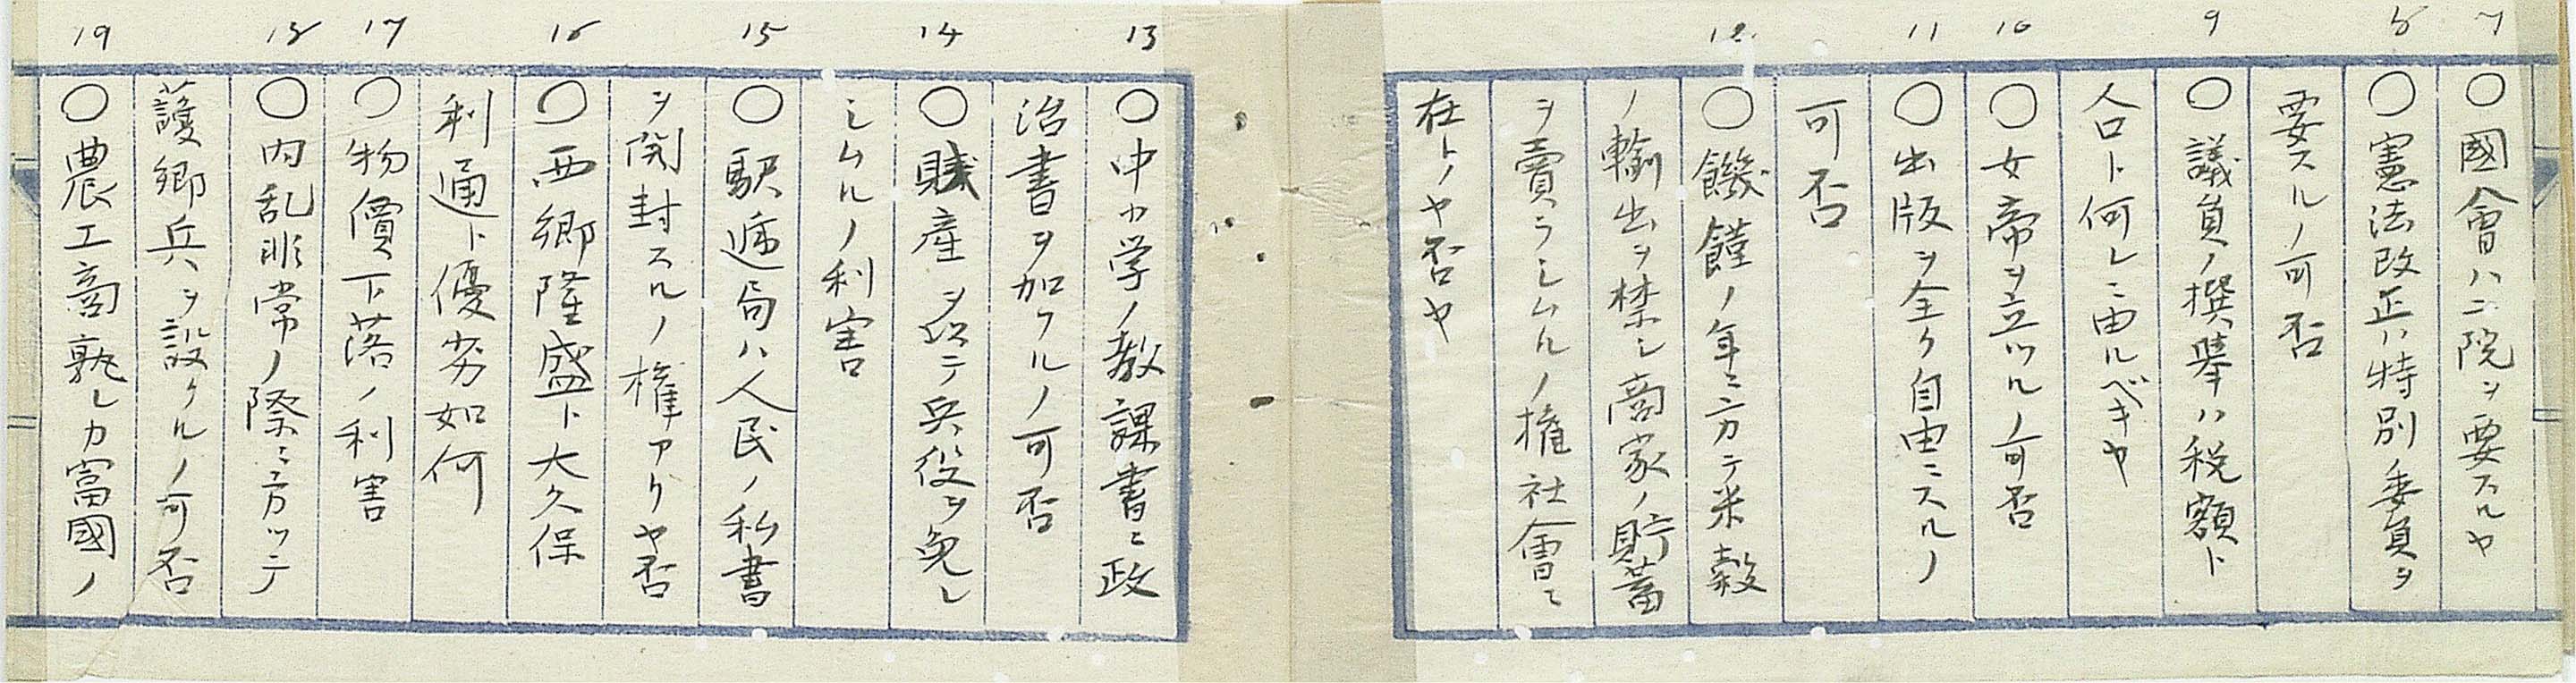 7
○國會ハ二院ヲ要スルヤ
8
○憲法改正ハ特別ノ委員ヲ
要スルノ可否
9
○議員ノ撰擧ハ税額ト
人口ト何レニ由ルベキヤ
10
○女帝ヲ立ツルノ可否
11
○出版ヲ全ク自由ニスルノ
可否
12
○饑饉ノ年ニ方テ米穀
ノ輸出ヲ禁シ商家ノ貯蓄
ヲ賣ラシムルノ權社會ニ
在トノヤ否ヤ
13
○中カ学ノ教課書ニ政
治書ヲ加フルノ可否
14
○賤産ヲ以テ兵役ヲ免レ
シムルノ利害
15
○駅逓局ハ人民ノ私書
ヲ開封スルノ權アリヤ否
16
○西郷隆盛ト大久保
利通ト優劣如何
17
○物價下落ノ利害
18
○内乱非常ノ際ニ方ツテ
護郷兵ヲ設クルノ可否
19
○農工商孰レカ富國ノ